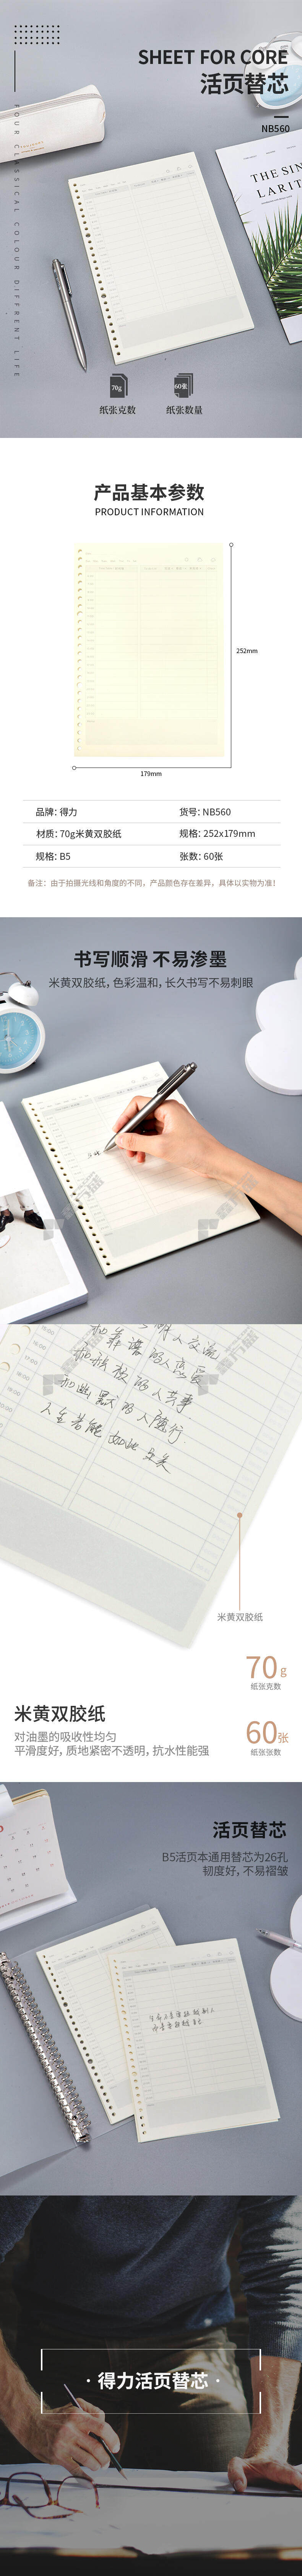 SHEET FOR CORE
活页替芯
NB560
FOUR CLASSICAL COLOUR DIFFRENT LIFE
THE SIN
LARIT
70g
60张
纸张克数
纸张数量
产品基本参数
PRODUCT INFORMATION
252mm
179mm
品牌：得力
货号：NB560
材质：70g米黄双胶纸
规格：252x179mm
规格：B5
张数：60张
备注：由于拍摄光线和角度的不同，产品颜色存在差异，具体以实物为准！
书写顺滑 不易渗墨
米黄双胶纸，色彩温和，长久书写不易刺眼
16:00
17:00
18:00
19:00
和靠谱的人恋爱
和幽默的人随行
人生若能如此 足矣
米黄双胶纸
70g
纸张克数
米黄双胶纸
对油墨的吸收性均匀
平滑度好，质地紧密不透明，抗水性能强
60张
纸张张数
活页替芯
B5活页本通用替芯为26孔
韧度好，不易褶皱
· 得力活页替芯 ·